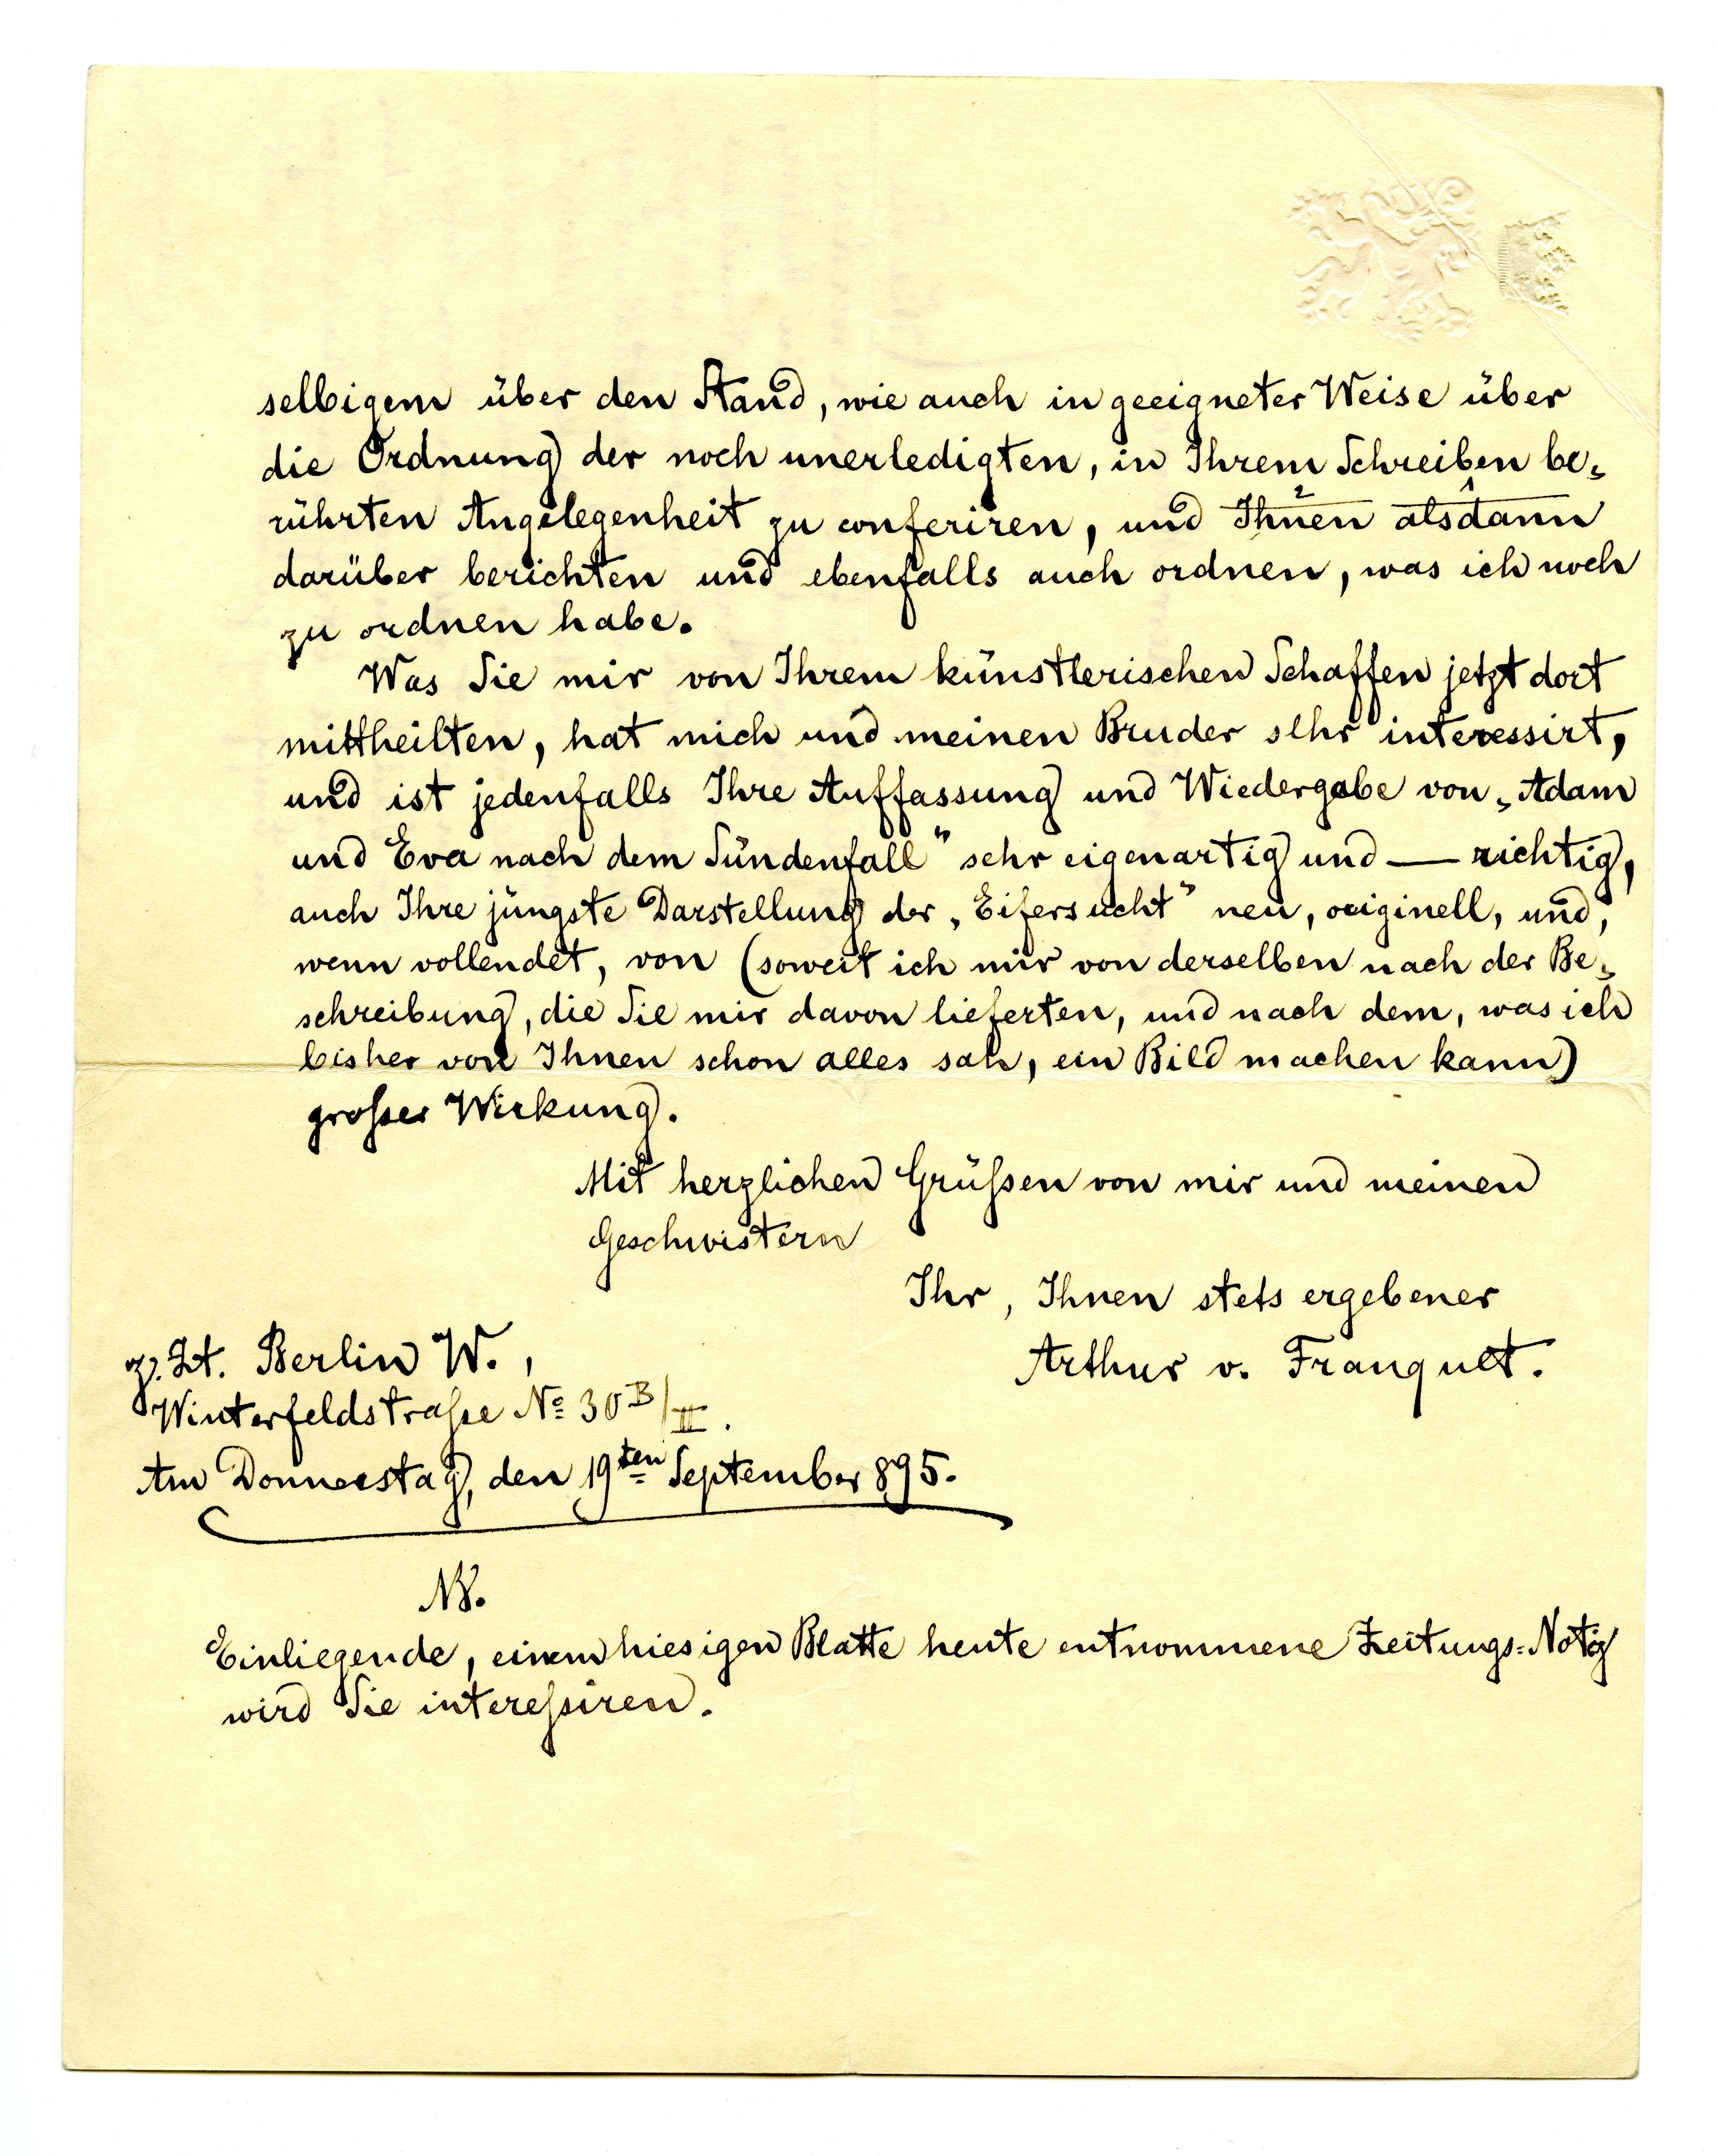 selbigem über den Stand, wie auch in geeigneter Weise über
die Ordnung der noch unerledigten, in Ihrem Schreiben be„
rührten Angelegenheit zu conferiren, und Ihnen alsdann
darüber berichten und ebenfalls auch ordnen, was ich noch
zu ordnen habe.
Was Sie mir von Ihrem künstlerischen Schaffen jetzt dort
mittheilten, hat mich und meinen Bruder sehr interessirt,
und ist jedenfalls Ihre Auffassung und Wiedergabe von „Adam
und Eva nach dem Sündenfall“ sehr eigenartig und — richtig,
auch Ihre jüngste Darstellung der „Eifersucht“ neu, originell, und,
wenn vollendet, von (soweit ich mir von derselben nach der Be„
schreibung, die Sie mir davon lieferten, und nach dem, was ich
bisher von Ihnen schon alles sah, ein Bild machen kann)
großer Wirkung.
Mit herzlichen Grüßen von mir und meinen
Geschwistern
Ihr, Ihnen stets ergebener
Arthur v. Franquet.
z. Zt. Berlin W.,
Winterfeldstraße No 30 B/II.
Am Donnerstag, den 19ten September 895.
NB.
Einliegende, einem hiesigen Blatte heute entnommene Zeitungs=Notiz
wird Sie intereßiren.